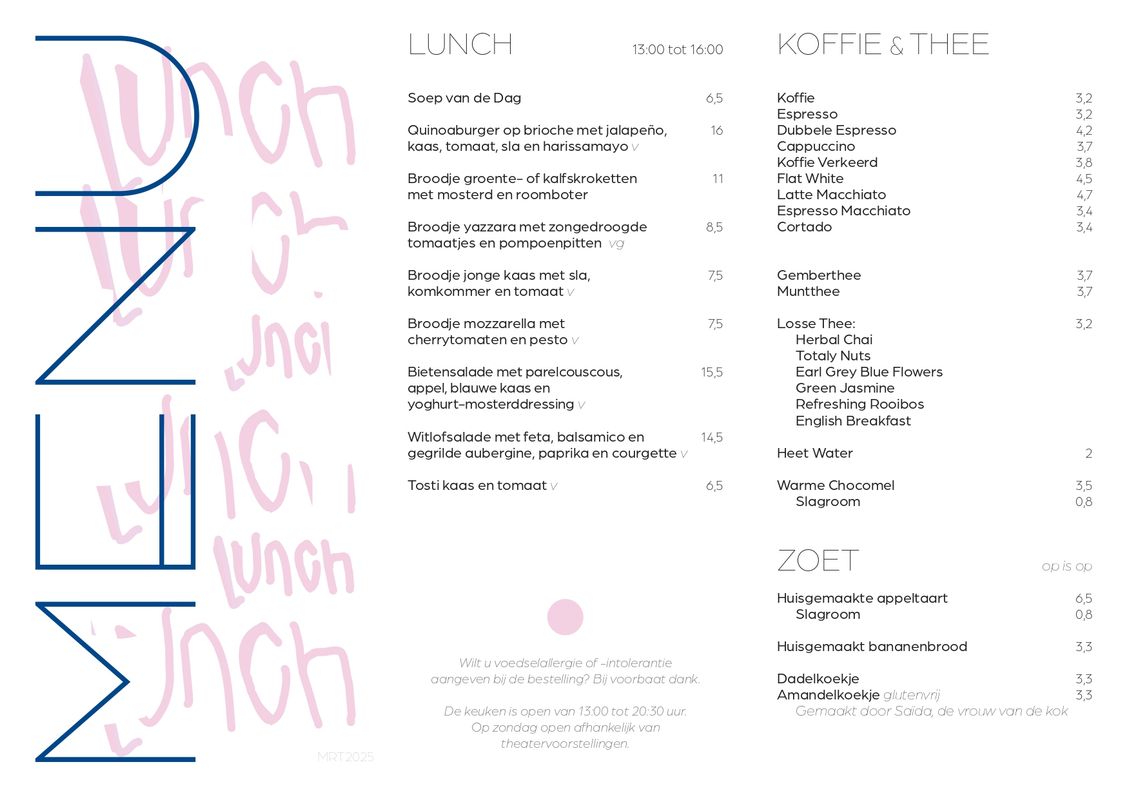 MENU
Lunch
Lunch
Lunch
Lunch
Lunch
Lunch
MRT2025
LUNCH 13:00 tot 16:00
Soep van de Dag 6,5
Quinoaburger op brioche met jalapeño, 16
kaas, tomaat, sla en harissamayo v
Broodje groente- of kalfskroketten 11
met mosterd en roomboter
Broodje yazzara met zongedroogde 8,5
tomaatjes en pompoenpitten vg
Broodje jonge kaas met sla, 7,5
komkommer en tomaat v
Broodje mozzarella met 7,5
cherrytomaten en pesto v
Bietensalade met parelcouscous, 15,5
appel, blauwe kaas en
yoghurt-mosterddressing v
Witlofsalade met feta, balsamico en 14,5
gegrilde aubergine, paprika en courgette v
Tosti kaas en tomaat v 6,5
Wilt u voedselallergie of -intolerantie
aangeven bij de bestelling? Bij voorbaat dank.
De keuken is open van 13:00 tot 20:30 uur.
Op zondag open afhankelijk van
theatervoorstellingen.
KOFFIE & THEE
Koffie 3,2
Espresso 3,2
Dubbele Espresso 4,2
Cappuccino 3,7
Koffie Verkeerd 3,8
Flat White 4,5
Latte Macchiato 4,7
Espresso Macchiato 3,4
Cortado 3,4
Gemberthee 3,7
Muntthee 3,7
Losse Thee: 3,2
Herbal Chai
Totaly Nuts
Earl Grey Blue Flowers
Green Jasmine
Refreshing Rooibos
English Breakfast
Heet Water 2
Warme Chocomel 3,5
Slagroom 0,8
ZOET op is op
Huisgemaakte appeltaart 6,5
Slagroom 0,8
Huisgemaakt bananenbrood 3,3
Dadelkoekje 3,3
Amandelkoekje glutenvrij 3,3
Gemaakt door Saïda, de vrouw van de kok